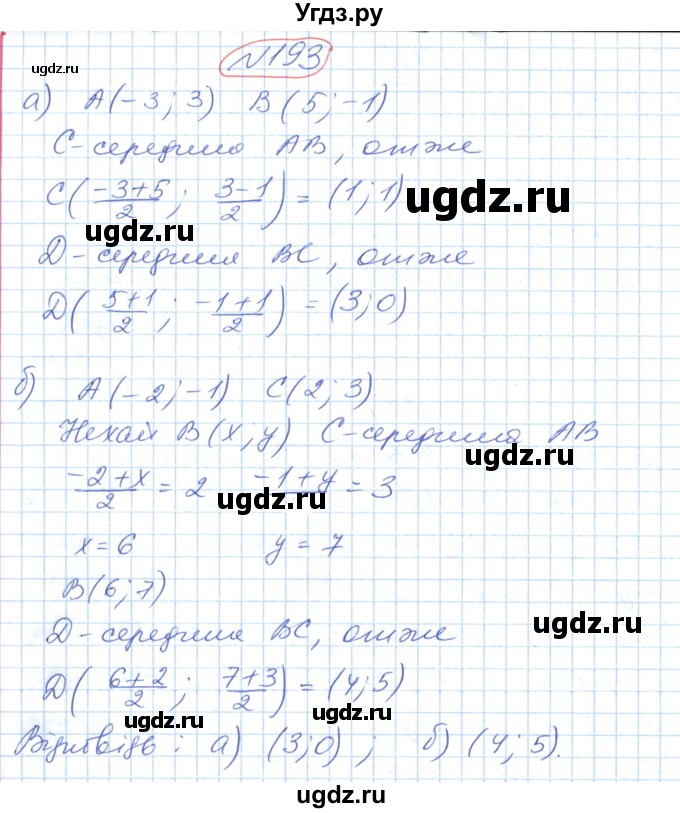 Угдз.ру
№193
ugdz.ru
а) A(-3; 3) B(5; -1)
C-середина AB, отже
C((-3+5)/2; (3-1)/2) = (1; 1)
ugdz.ru
ugdz.ru
D-середина BC, отже
D((5+1)/2; (-1+1)/2) = (3; 0)
б) A(-2; -1) C(2; 3)
Нехай B(x, y) C-середина AB
ugdz.ru
(-2+x)/2 = 2 (-1+y)/2 = 3
ugdz.ru
x = 6 y = 7
B(6; 7)
ugdz.ru
D-середина BC, отже
D((6+2)/2; (7+3)/2) = (4; 5)
ugdz.ru
ugdz.ru
Відповідь: а) (3; 0); б) (4; 5).
ugdz.ru